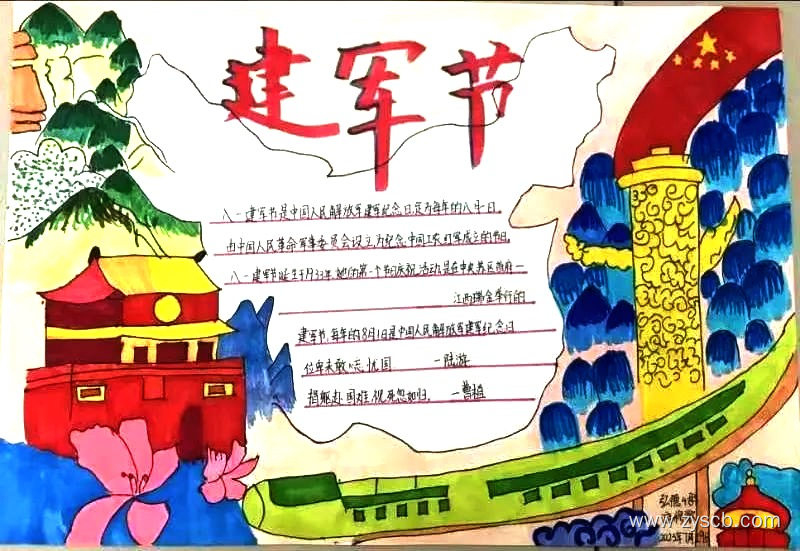 建军节
八一建军节是中国人民解放军建军纪念日,定为每年的八月一日,
由中国人民革命军事委员会设立,为纪念中国工农红军成立的节日,
八一建军节诞生于1933年,她的第一个节日庆祝活动是在中央苏区政府—
江西瑞金举行的
建军节,每年的8月1日是中国人民解放军建军纪念日
位卑未敢忘忧国 —陆游
捐躯赴国难,视死忽如归, —曹植
弘德
www.zyscb.com